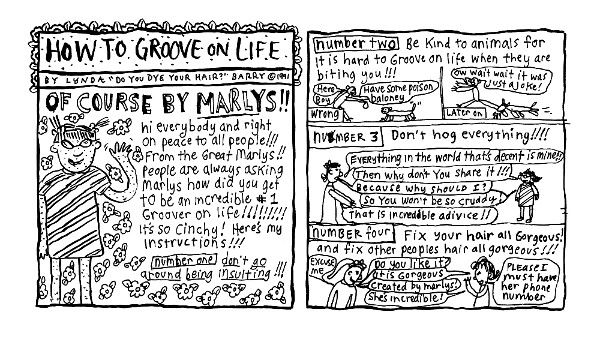 HOW TO GROOVE ON LIFE
BY LYNDA "DO YOU DYE YOUR HAIR?" BARRY © 1991
OF COURSE BY MARLYS!!
hi everybody and right
on peace to all people!!!
From the Great Marlys!!
People are always asking
Marlys how did you get
to be an incredible #1
Groover on life!!!!!!!!!
It's so Cinchy! Here's my
instructions!!!
number one) don't go
around being insulting!!!
number two) Be kind to animals for
it is hard to Groove on life when they are
biting you!!!
Here
Boy
Have some poison
baloney
Wrong
Ow wait wait it was
just a joke!
Later on
NUMBER 3 Don't hog everything!!!!
Everything in the world that's decent is mine!!
Then why don't You share it!!!
Because why should I?
So You won't be so cruddy!
That is incredible advice!!
NUMBER four Fix your hair all Gorgeous!
and fix other peoples hair all gorgeous!!!!
Excuse
me
Do you like it?
It is Gorgeous
Created by marlys!
She's incredible!
PLEASE I
must have
her phone
number